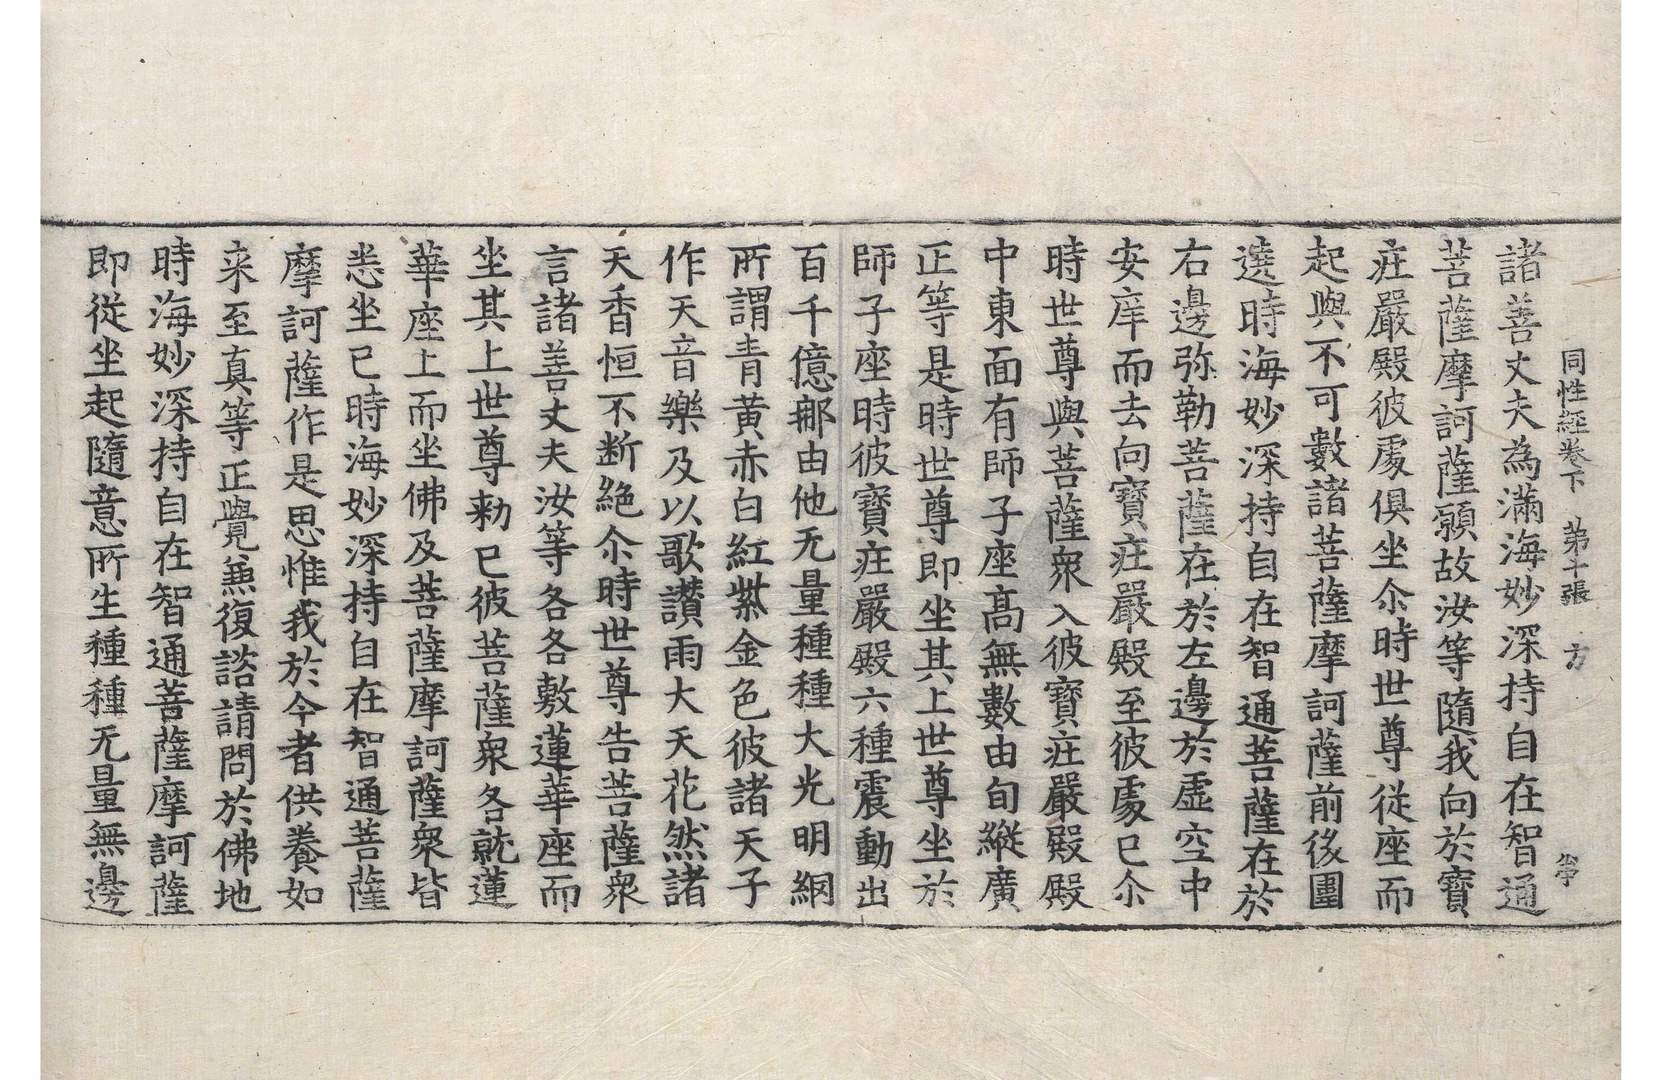 同性經卷下 第十張 方
諸善丈夫為滿海妙深持自在智通
菩薩摩訶薩願故汝等隨我向於寶
疘嚴殿彼䖏俱坐尒時世尊從座而
起與不可數諸菩薩摩訶薩前後圍
遶時海妙深持自在智通菩薩在於
右邊弥勒菩薩在於左邊於虛空中
安庠而去向寶疘嚴殿至彼䖏已尒
時世尊與菩薩衆入彼寶疘嚴殿殿
中東面有師子座髙無數由旬縱廣
正等是時世尊即坐其上世尊坐於
師子座時彼寶疘嚴殿六種震動出
百千億那由他无量種種大光明網
所謂青黃赤白紅紫金色彼諸天子
作天音樂及以歌讚雨大天花然諸
天香恒不断絶尒時世尊告菩薩衆
言諸善丈夫汝等各各敷蓮華座而
坐其上世尊勑已彼菩薩衆各就蓮
華座上而坐佛及菩薩摩訶薩衆皆
悉坐已時海妙深持自在智通菩薩
摩訶薩作是思惟我於今者供養如
来至真等正覺兼復諮請問於佛地
時海妙深持自在智通菩薩摩訶薩
即從坐起隨意所生種種无量無邊